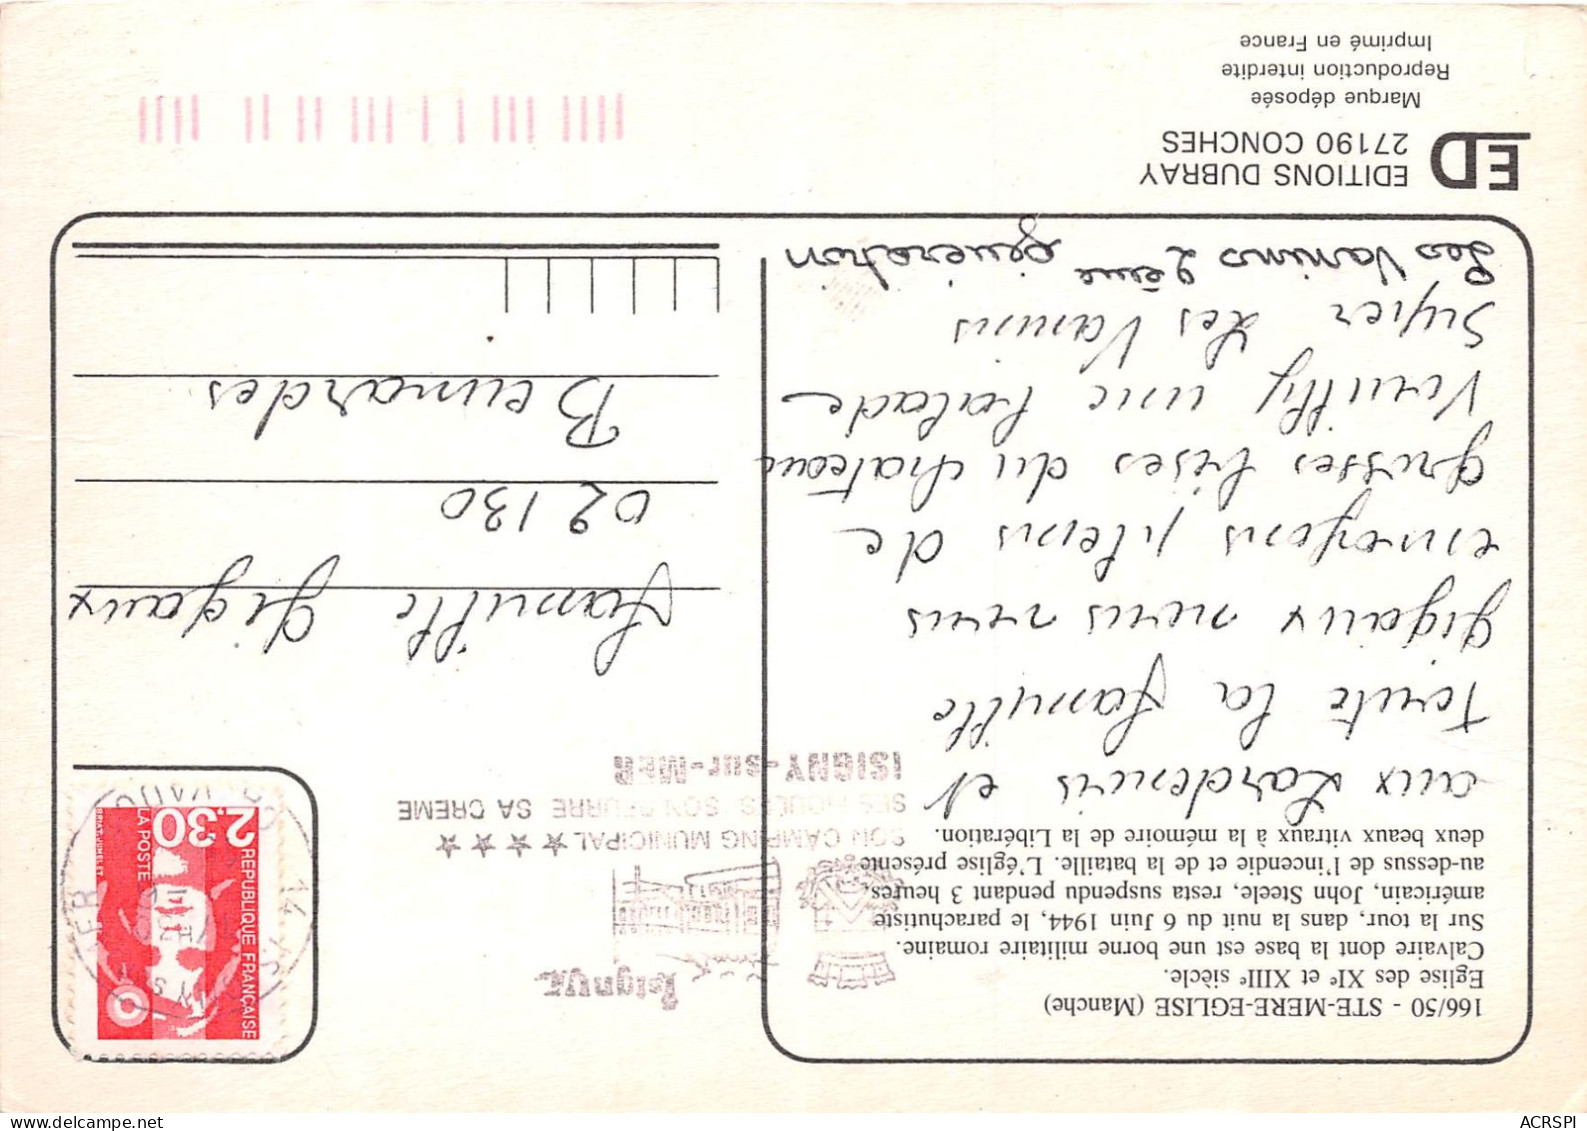 166/50 - STE-MERE-EGLISE (Manche)
Eglise des XIᵉ et XIIIᵉ siècle.
Calvaire dont la base est une borne militaire romaine.
Sur la tour, dans la nuit du 6 Juin 1944, le parachutiste
américain, John Steele, resta suspendu pendant 3 heures,
au-dessus de l'incendie et de la bataille. L'église présente
deux beaux vitraux à la mémoire de la Libération.
aux Lardenois et
Toute la famille
Gigaux nous vous
envoyons pleins de
grosses bises du chateau
Vouilly une balade
super Les Vanins
Les Vanins 2ème génération
Isigny
SON CAMPING MUNICIPAL ★★★★★
SON BEURRE SA CREME
ISIGNY-sur-MER
REPUBLIQUE FRANÇAISE
2,30
LA POSTE
14
Famille Gigaux
02130
Beuvardes
EDITIONS DUBRAY
27190 CONCHES
ED
Marque déposée
Reproduction interdite
Imprimé en France
ACRSPI